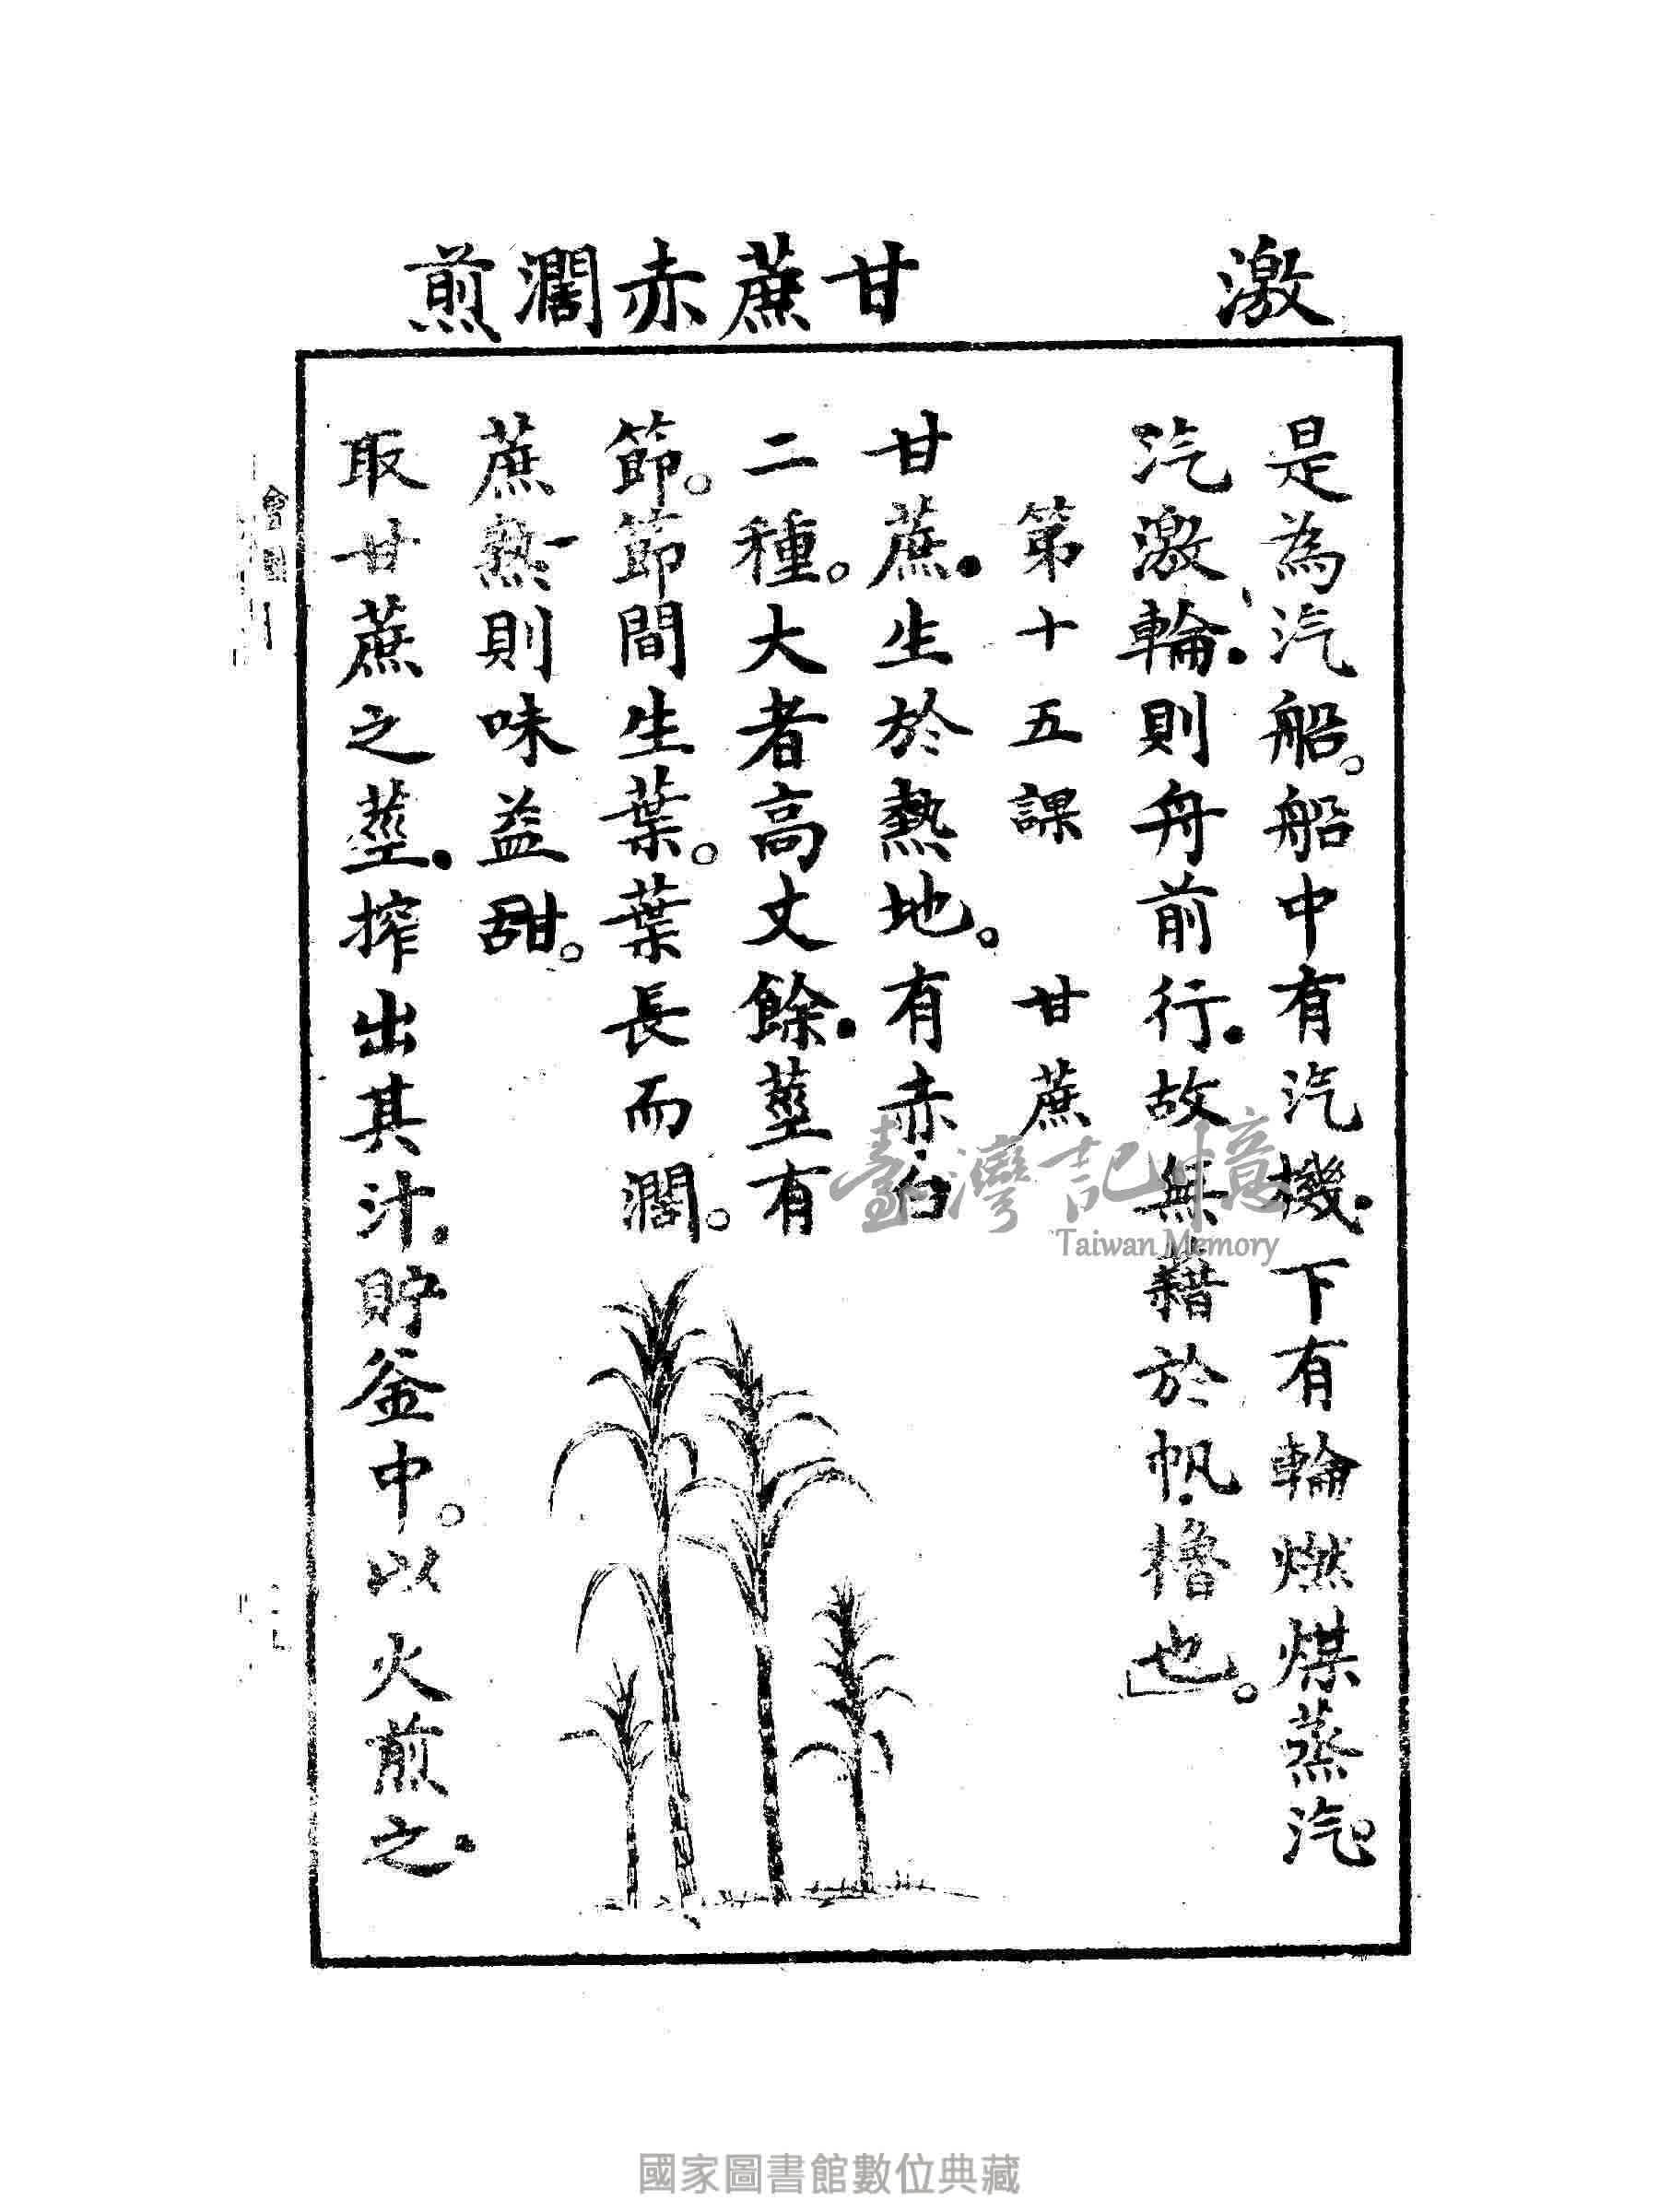 激
甘蔗赤濶煎
是為汽船。船中有汽機．下有輪燃煤蒸汽。
汽激輪．則舟前行．故無藉於帆．櫓也。
第十五課 甘蔗
甘蔗．生於熱地。有赤．白
二種。大者高丈餘．莖有
節。節間生葉。葉長而濶。
蔗熟則味益甜。
取甘蔗之莖．搾出其汁．貯釜中。以火煎之．
臺灣記憶
Taiwan Memory
國家圖書館數位典藏